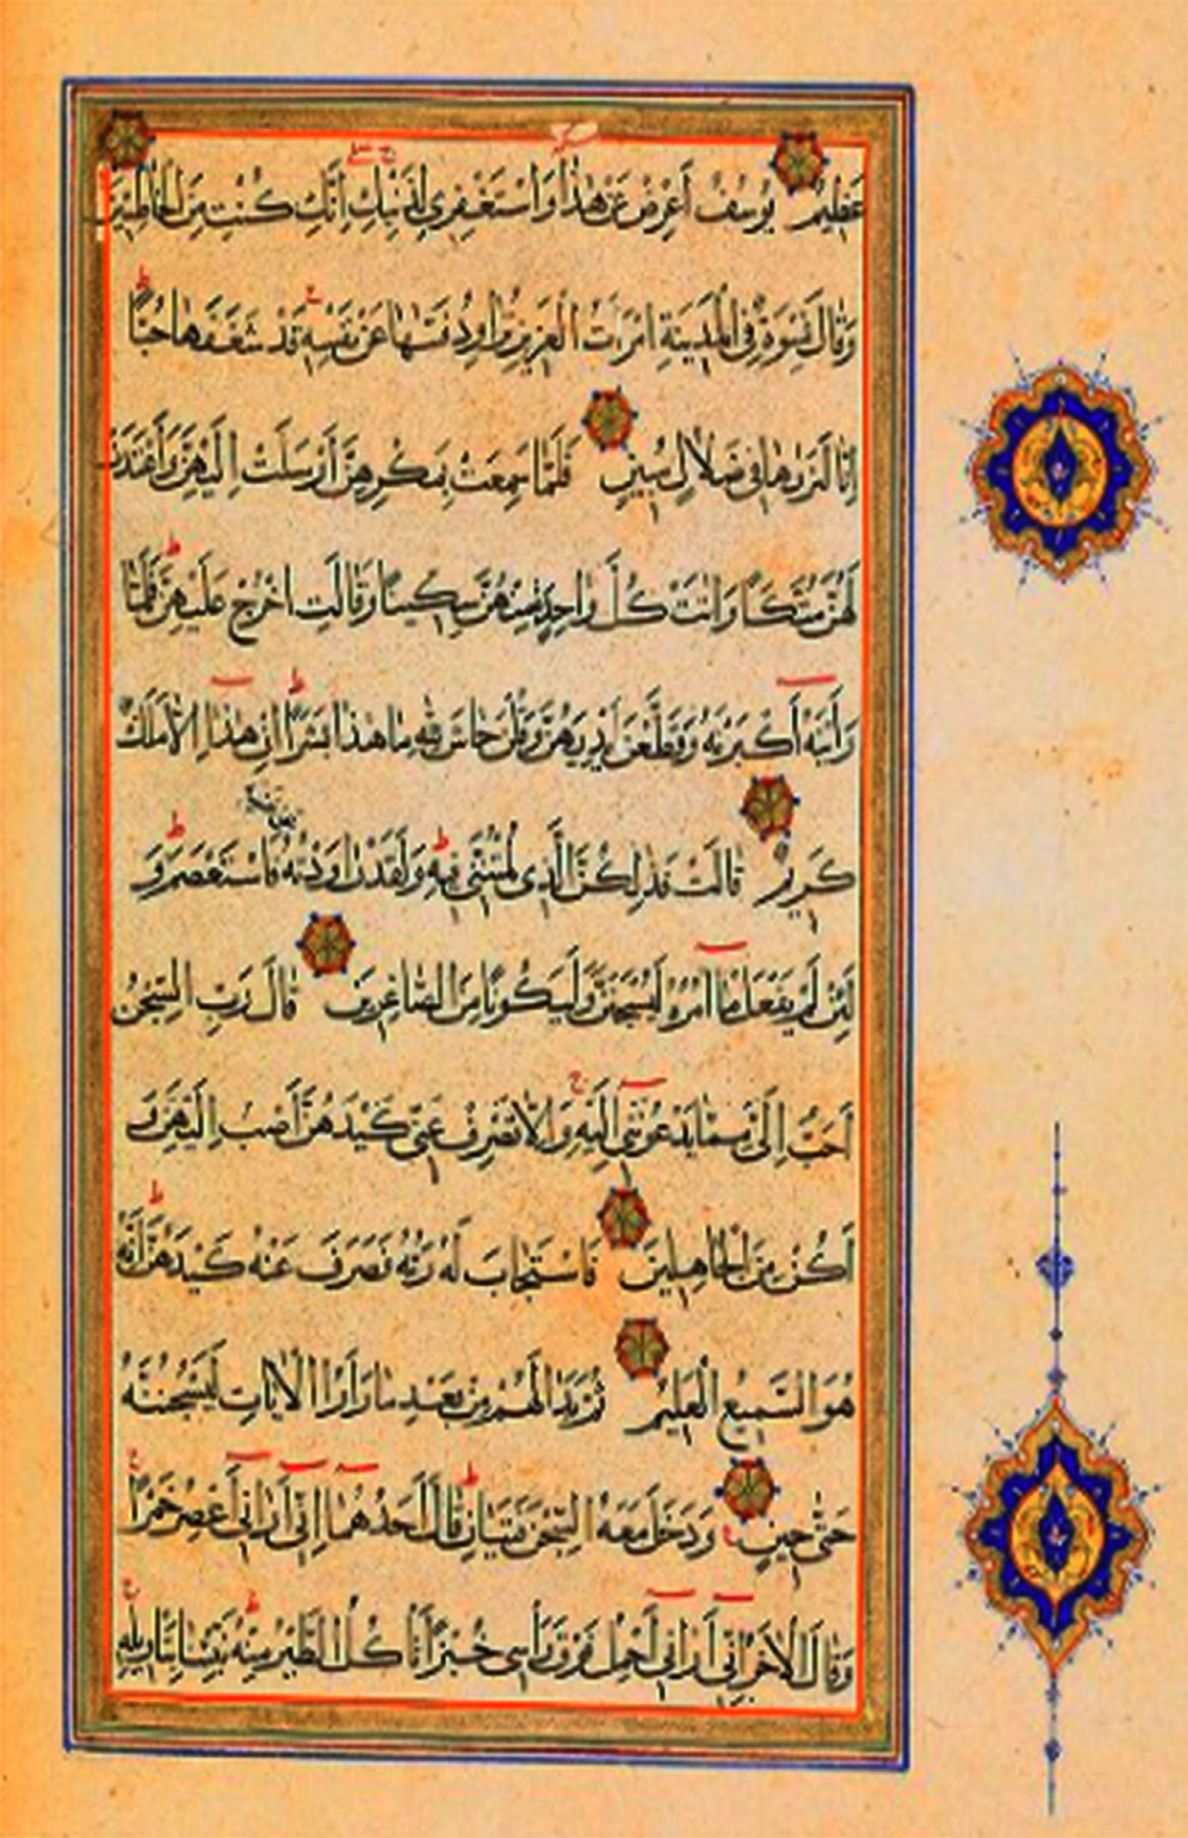 عَظِيمٌ يُوسُفُ أَعْرِضْ عَنْ هٰذَا وَاسْتَغْفِرِي لِذَنْبِكِ اِنَّكِ كُنْتِ مِنَ الْخَاطِئِينَ
وَقَالَ نِسْوَةٌ فِي الْمَدِينَةِ امْرَأَتُ الْعَزِيزِ تُرَاوِدُ فَتٰيهَا عَنْ نَفْسِهِ قَدْ شَغَفَهَا حُبًّا
اِنَّا لَنَرٰيهَا فِي ضَلَالٍ مُبِينٍ فَلَمَّا سَمِعَتْ بِمَكْرِهِنَّ أَرْسَلَتْ اِلَيْهِنَّ وَأَعْتَدَتْ
لَهُنَّ مُتَّكَأً وَاٰتَتْ كُلَّ وَاحِدَةٍ مِنْهُنَّ سِكِّينًا وَقَالَتِ اخْرُجْ عَلَيْهِنَّ فَلَمَّا
رَأَيْنَهُ أَكْبَرْنَهُ وَقَطَّعْنَ أَيْدِيَهُنَّ وَقُلْنَ حَاشَ لِلّٰهِ مَا هٰذَا بَشَرًا اِنْ هٰذَا اِلَّا مَلَكٌ
كَرِيمٌ قَالَتْ فَذٰلِكُنَّ الَّذِي لُمْتُنَّنِي فِيهِ وَلَقَدْ رَاوَدْتُهُ عَنْ نَفْسِهِ فَاسْتَعْصَمَ وَ
لَئِنْ لَمْ يَفْعَلْ مَا اٰمُرُهُ لَيُسْجَنَنَّ وَلَيَكُونًا مِنَ الصَّاغِرِينَ قَالَ رَبِّ السِّجْنُ
أَحَبُّ اِلَيَّ مِمَّا يَدْعُونَنِي اِلَيْهِ وَاِلَّا تَصْرِفْ عَنِّي كَيْدَهُنَّ أَصْبُ اِلَيْهِنَّ وَ
أَكُنْ مِنَ الْجَاهِلِينَ فَاسْتَجَابَ لَهُ رَبُّهُ فَصَرَفَ عَنْهُ كَيْدَهُنَّ اِنَّهُ
هُوَ السَّمِيعُ الْعَلِيمُ ثُمَّ بَدَا لَهُمْ مِنْ بَعْدِ مَا رَأَوُا الْاٰيَاتِ لَيَسْجُنُنَّهُ
حَتّٰى حِينٍ وَدَخَلَ مَعَهُ السِّجْنَ فَتَيَانِ قَالَ أَحَدُهُمَا اِنِّي أَرٰانِي أَعْصِرُ خَمْرًا
وَقَالَ الْاٰخَرُ اِنِّي أَرٰانِي أَحْمِلُ فَوْقَ رَأْسِي خُبْزًا تَأْكُلُ الطَّيْرُ مِنْهُ نَبِّئْنَا بِتَأْوِيلِهِ